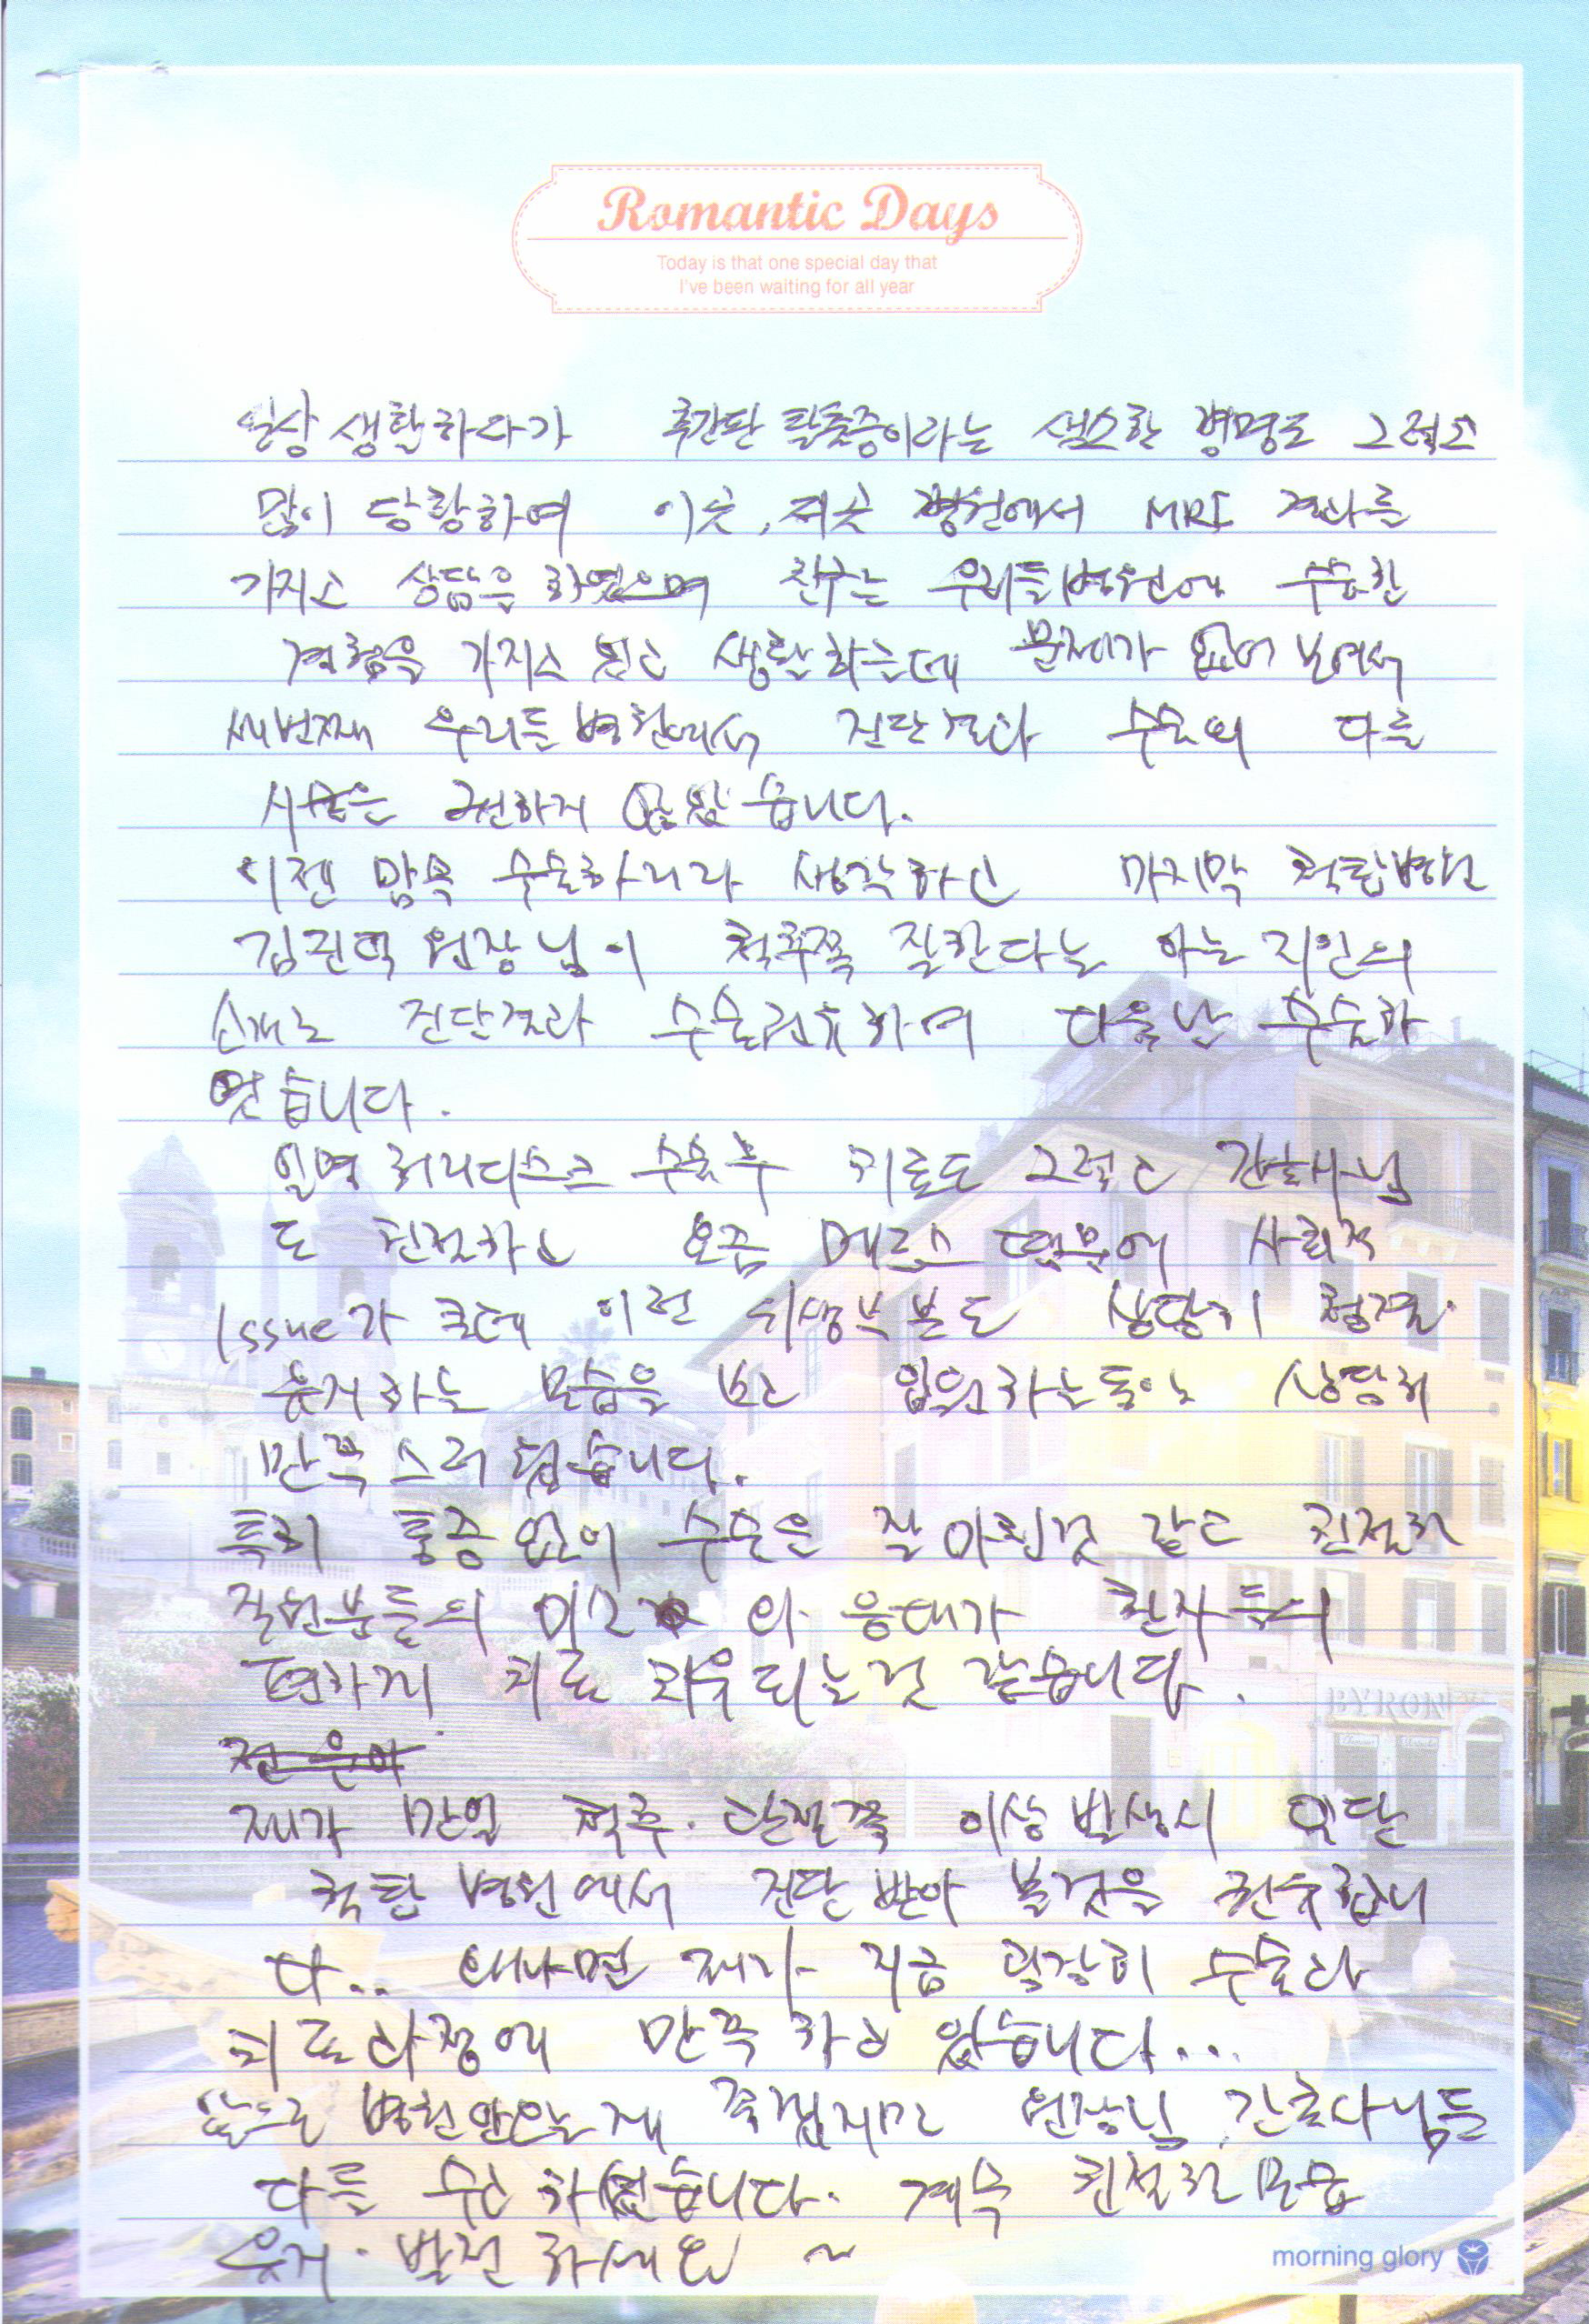 Romantic Days
Today is that one special day that
I've been waiting for all year
일상 생활하다가 추간판 탈출증이라는 생소한 병명도 그렇고
많이 당황하여 이곳, 저곳 병원에서 MRI 결과를
가지고 상담을 하였으며 친구는 우리들병원에 수술한
경험을 가지고 있고 생활하는데 문제가 없어 보여서
세번째 우리들 병원에서 진단결과 수술외 다른
시술은 권하지 않았습니다.
이젠 맘먹 수술하리라 생각하고 마지막 척탑병원
김진혁 원장님이 척추쪽 잘한다는 아는 지인의
소개로 진단결과 수술권유하여 다음날 수술하
였습니다.
일명 허리디스크 수술후 치료도 그렇고 간호사님
도 친절하고 요즘 메르스 때문에 사회적
Issue가 큰데 이런 위생부분도 상당히 청결.
유지하는 모습을 보고 입원하는동안 상당히
만족스러웠습니다.
특히 통증없이 수술은 잘 마친것 같고 친절한
직원분들의 미소 와 응대가 환자들의
편하게 치료 치유되는것 같습니다.
제가 만일 척추.관절쪽 이상 발생시 일단
척탑 병원에서 진단 받아 볼것을 권유합니
다.. 왜냐면 제가 지금 굉장히 수술과
치료과정에 만족하고 있습니다...
앞으로 병원안오는게 좋겠지만 원장님, 간호사님들
다들 수고하셨습니다. 계속 친절한 모습
유지.발전하세요 ~
morning glory